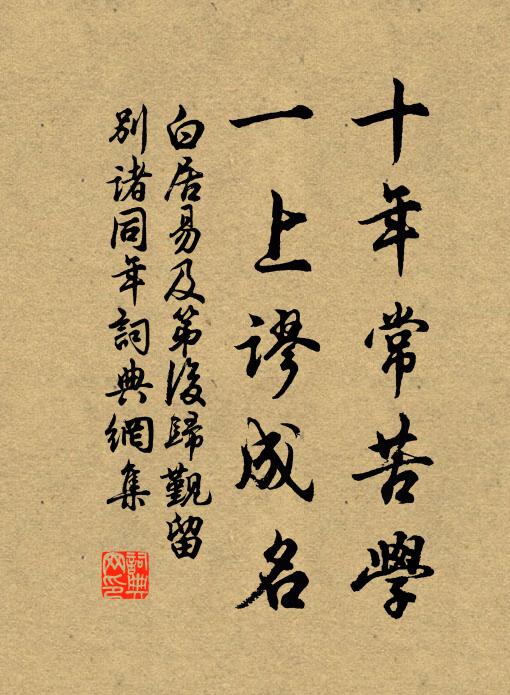 十年常苦學
一上謬成名
白居易及第後歸覲留
別諸同年詞典網集
詞典
网印